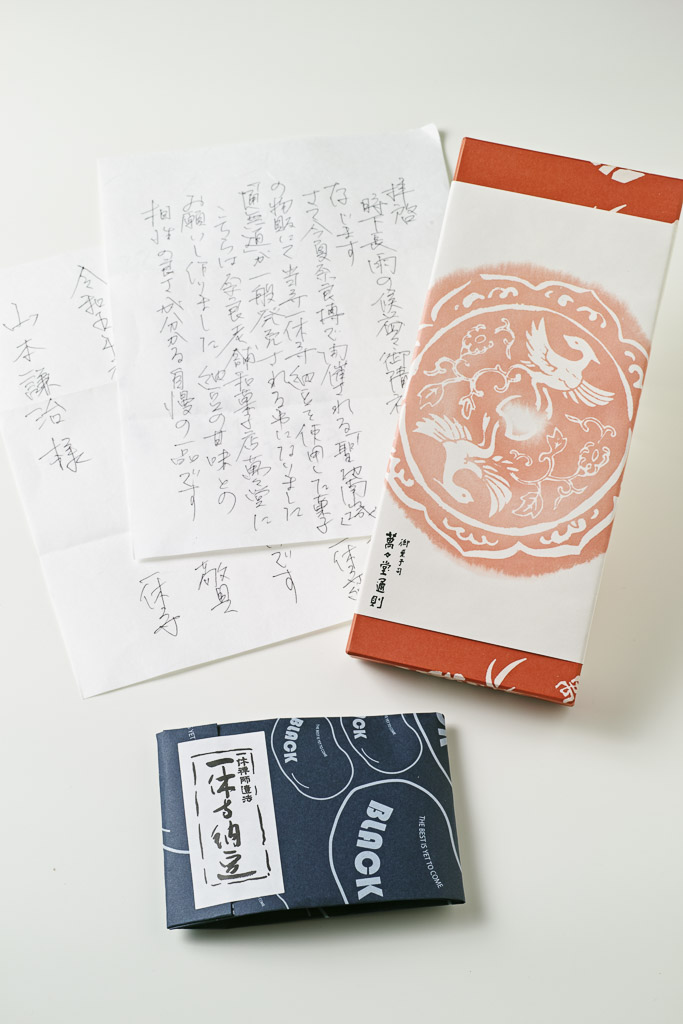 拝啓
時下長雨の候
なじます
さて今夏奈良博で開催れる聖地南
の物販にて当寺一休寺納豆を使用した菓子
が一般発売される事になりました
こちらは奈良老舗和菓子店萬々堂に
お願いし作りました 納豆の甘味との
相性の良さが分かる自慢の一品です
です
敬具
一休寺
令和五年
山本謙治 様
御菓子司
萬々堂通則
一休禅師遺法
一休寺納豆
BLACK
THE BEST IS YET TO COME
BLACK
BLACK
THE BEST IS YET TO COME